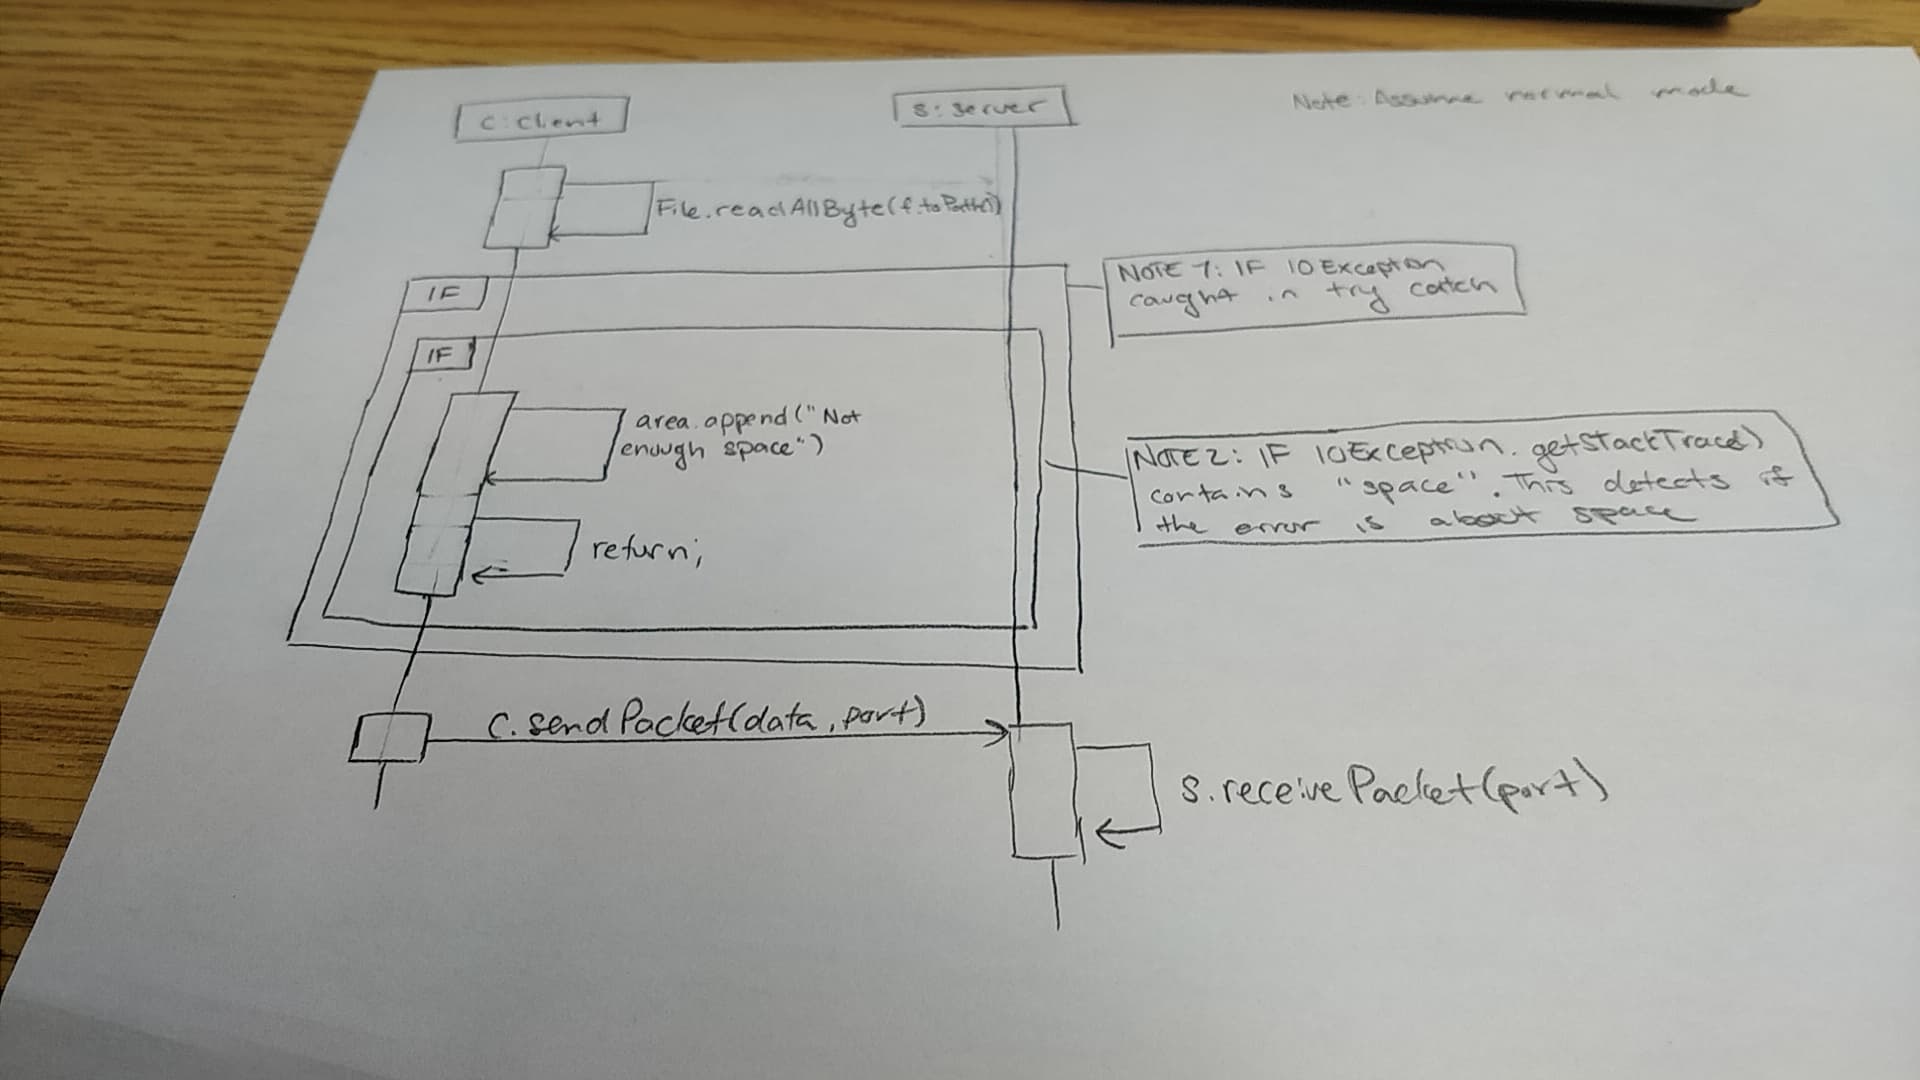 C:Client
S:Server
Note: Assume normal mode
File.readAllByte(f.toPath())
IF
NOTE 1: IF IOException
caught in try catch
IF
area.append("Not
enough space")
NOTE 2: IF IOException.getStackTrace()
contains "space". This detects if
the error is about space
return;
C.sendPacket(data, port)
S.receivePacket(port)